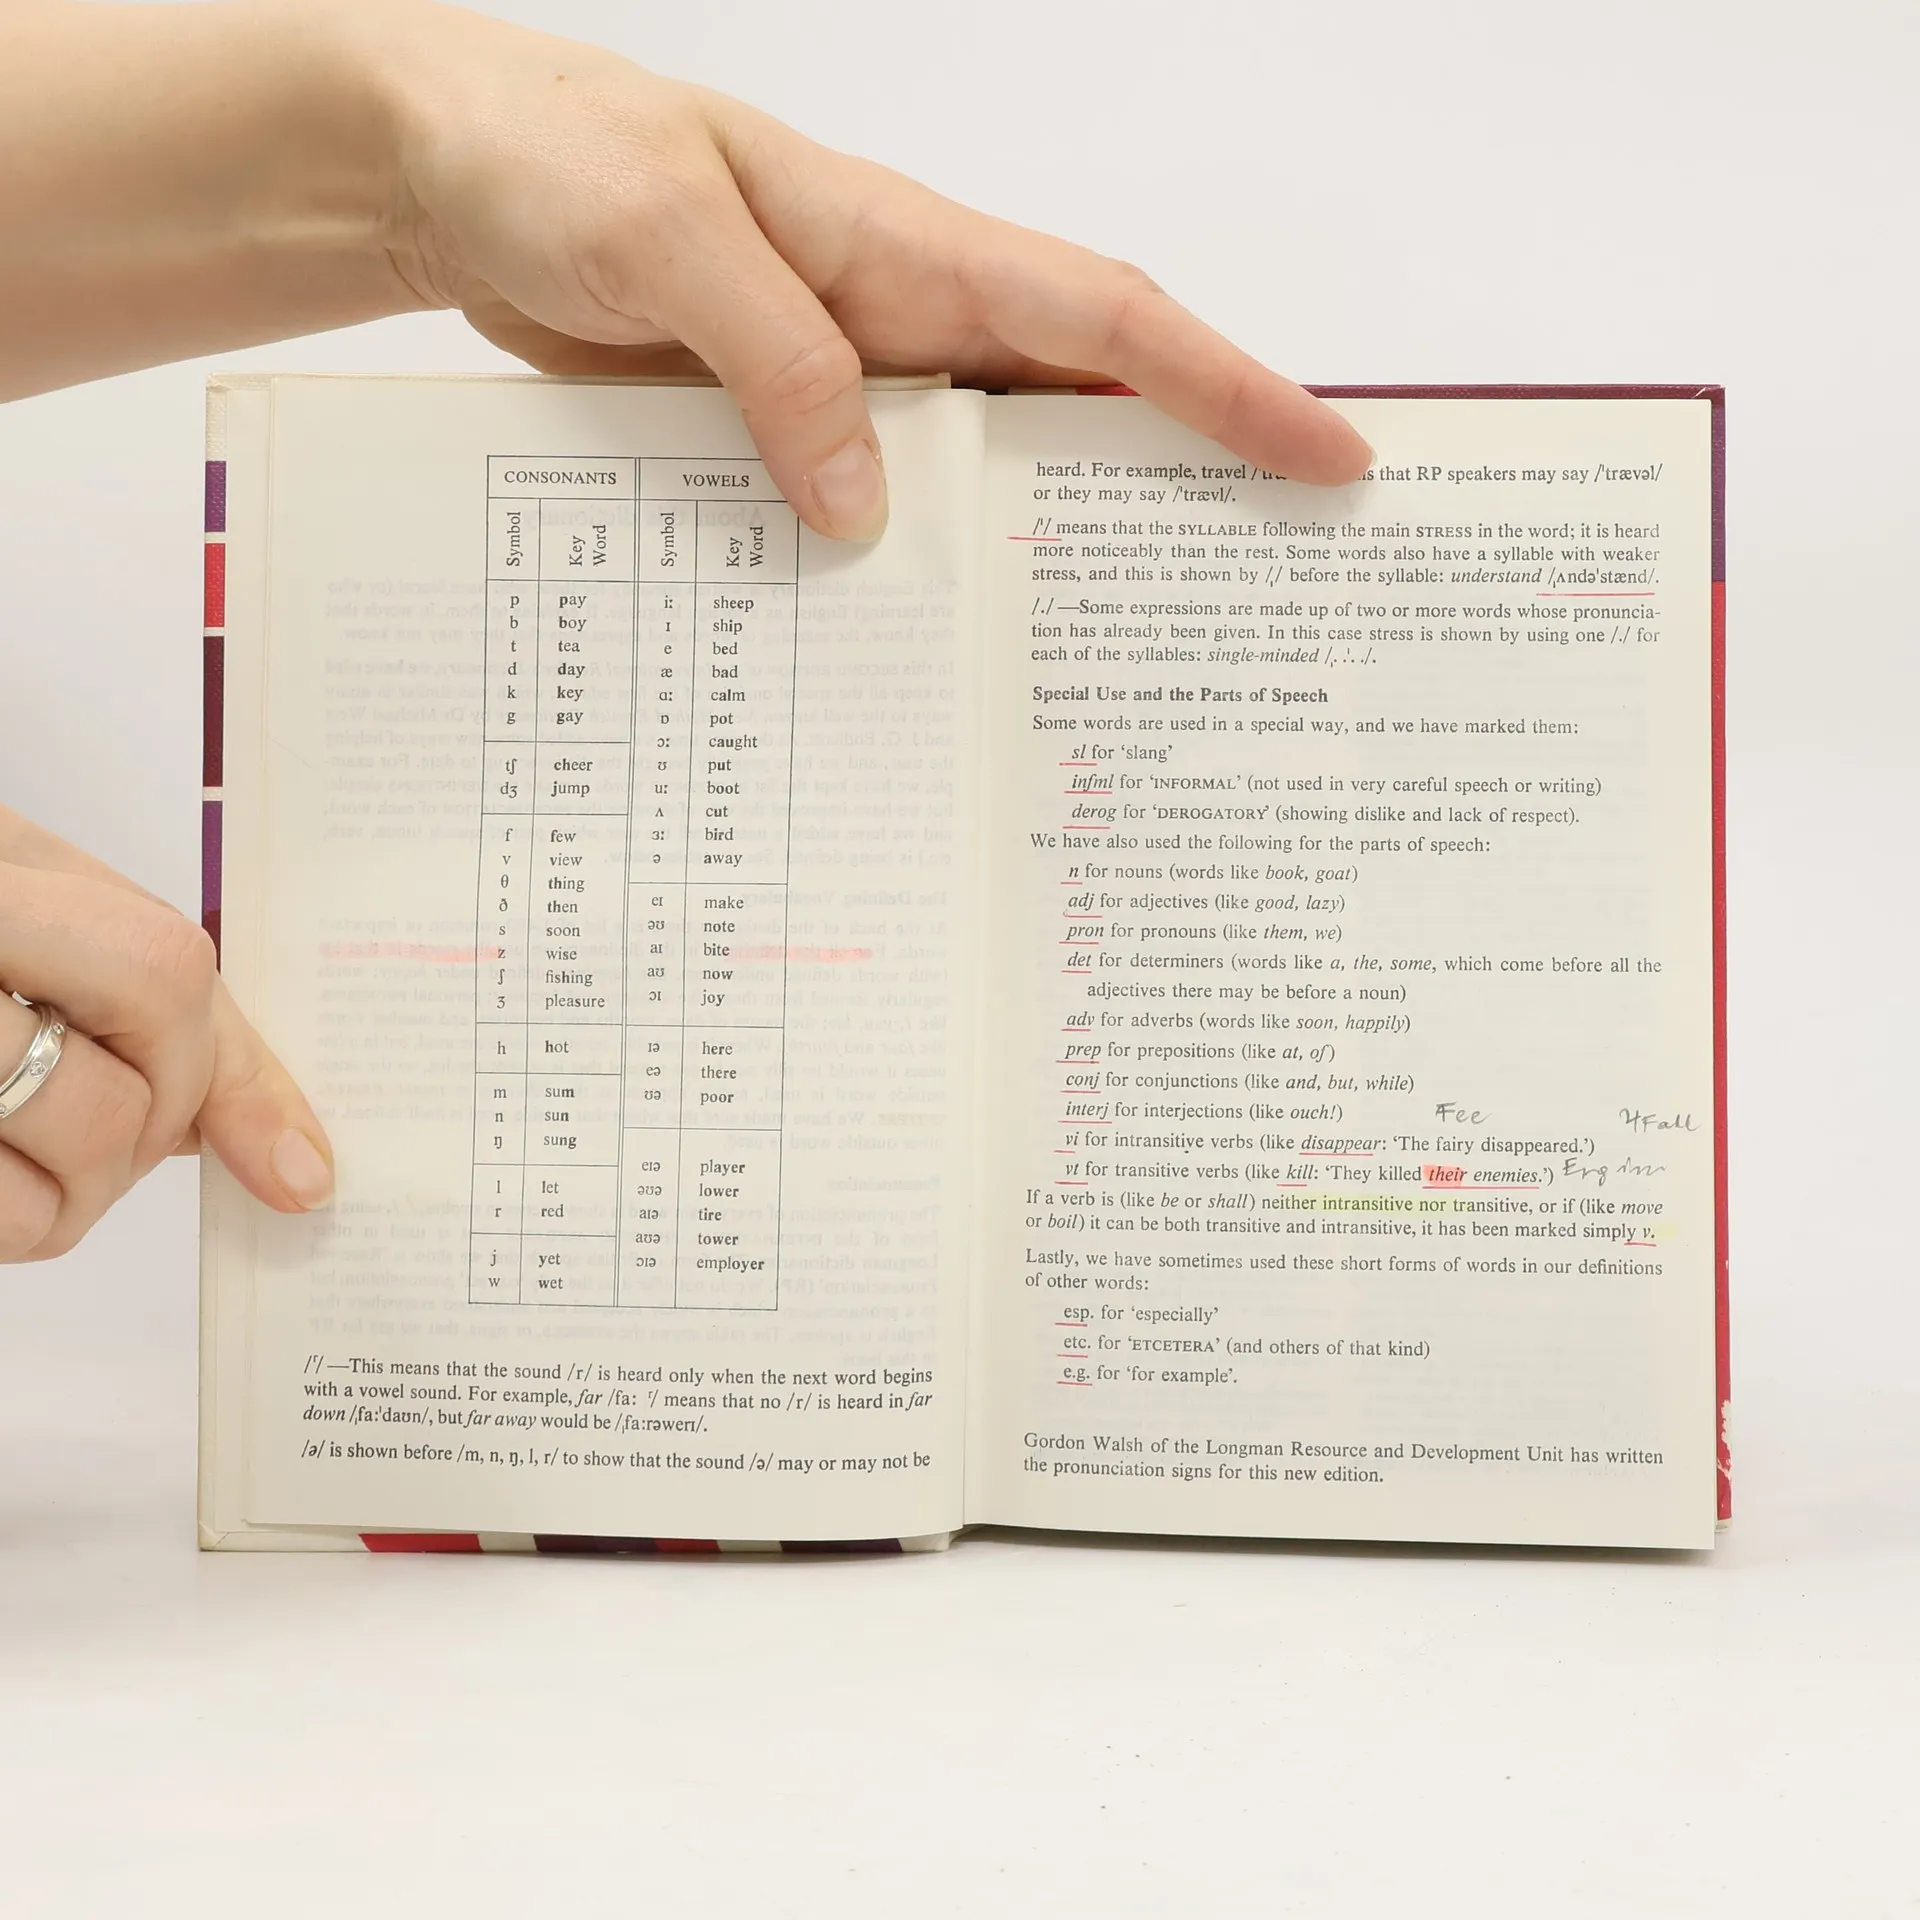 CONSONANTS VOWELS
Symbol Key Word Symbol Key Word
p pay iː sheep
b boy ɪ ship
t tea e bed
d day æ bad
k key ɑː calm
g gay ɒ pot
ɔː caught
tʃ cheer ʊ put
dʒ jump uː boot
ʌ cut
f few ɜː bird
v view ə away
θ thing
ð then eɪ make
s soon əʊ note
z wise aɪ bite
ʃ fishing aʊ now
ʒ pleasure ɔɪ joy
h hot ɪə here
eə there
m sum ʊə poor
n sun
ŋ sung
eɪə player
l let əʊə lower
r red aɪə tire
aʊə tower
j yet ɔɪə employer
w wet
/ʳ/—This means that the sound /r/ is heard only when the next word begins
with a vowel sound. For example, far /faː ʳ/ means that no /r/ is heard in far
down /ˌfaːˈdaʊn/, but far away would be /ˌfaːrəweɪ/.
/ə/ is shown before /m, n, ŋ, l, r/ to show that the sound /ə/ may or may not be
heard. For example, travel that RP speakers may say /ˈtrævəl/
or they may say /ˈtrævl/.
/ˈ/ means that the SYLLABLE following the main STRESS in the word; it is heard
more noticeably than the rest. Some words also have a syllable with weaker
stress, and this is shown by /ˌ/ before the syllable: understand /ˌʌndəˈstænd/.
/./—Some expressions are made up of two or more words whose pronuncia-
tion has already been given. In this case stress is shown by using one /./ for
each of the syllables: single-minded /ˌ. ˈ. ./.
Special Use and the Parts of Speech
Some words are used in a special way, and we have marked them:
sl for ‘slang’
infml for ‘INFORMAL’ (not used in very careful speech or writing)
derog for ‘DEROGATORY’ (showing dislike and lack of respect).
We have also used the following for the parts of speech:
n for nouns (words like book, goat)
adj for adjectives (like good, lazy)
pron for pronouns (like them, we)
det for determiners (words like a, the, some, which come before all the
adjectives there may be before a noun)
adv for adverbs (words like soon, happily)
prep for prepositions (like at, of)
conj for conjunctions (like and, but, while)
interj for interjections (like ouch!)
Fee 4Fall
vi for intransitive verbs (like disappear: ‘The fairy disappeared.’)
vt for transitive verbs (like kill: ‘They killed their enemies.’)
If a verb is (like be or shall) neither intransitive nor transitive, or if (like move
or boil) it can be both transitive and intransitive, it has been marked simply v.
Lastly, we have sometimes used these short forms of words in our definitions
of other words:
esp. for ‘especially’
etc. for ‘ETCETERA’ (and others of that kind)
e.g. for ‘for example’.
Gordon Walsh of the Longman Resource and Development Unit has written
the pronunciation signs for this new edition.